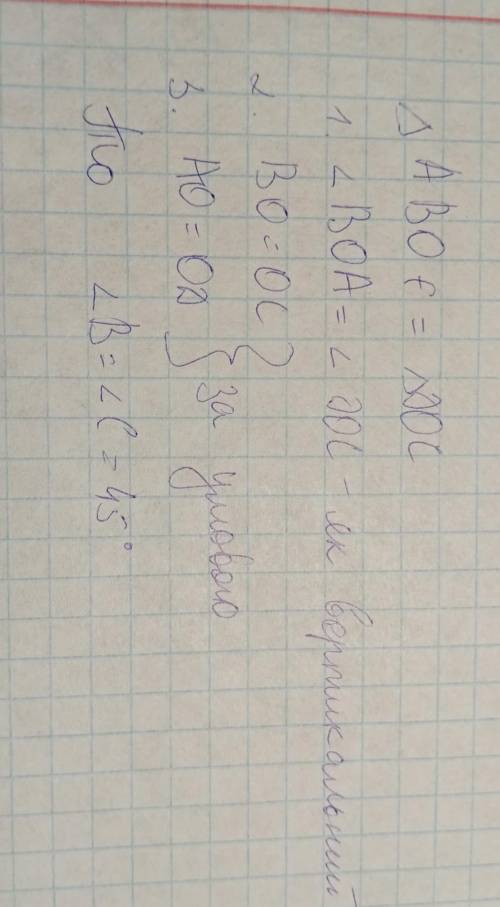 △ ABO є = △DOC
1. ∠ BOA = ∠ DOC - як вертикальний
2. BO = OC
3. AO = OD } за умовою
Тио ∠B = ∠C = 45°